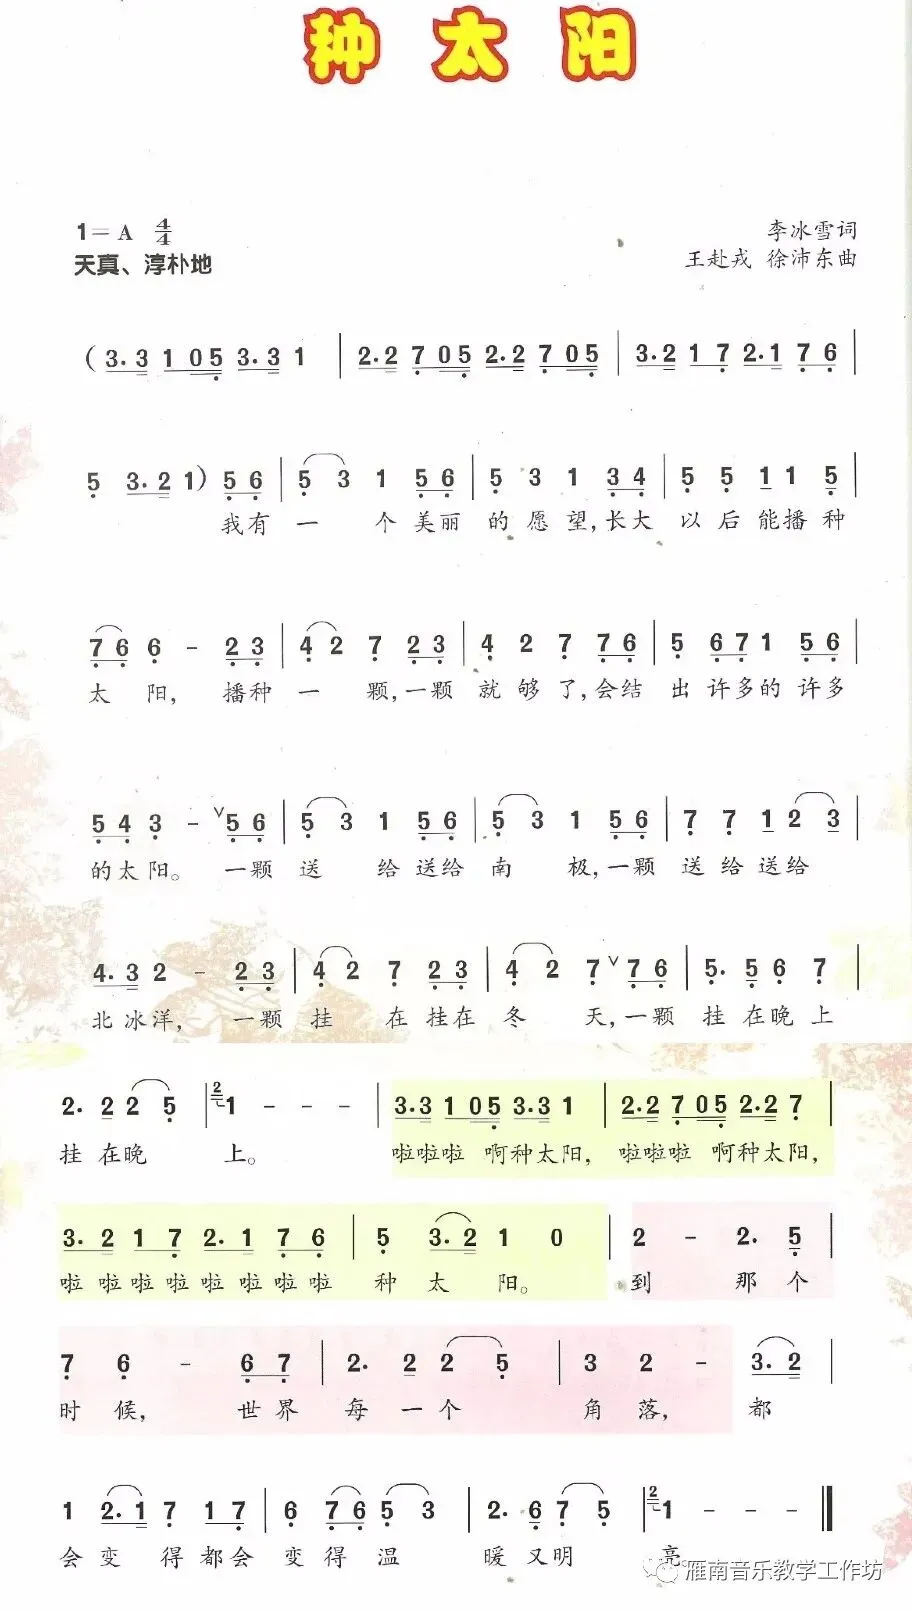 种太阳
1=A 4/4
李冰雪词
天真、淳朴地
王赴戎 徐沛东曲
( 3.3 1 05 3.3 1 | 2.2 7 05 2.2 7 05 | 3.2 1 7 2.1 7 6 |
5 3.2 1 ) 5 6 | 5 3 1 5 6 | 5 3 1 3 4 | 5 5 1 1 5 |
我有 一 个 美丽 的 愿 望,长大 以 后 能播 种
7 6 6 - 2 3 | 4 2 7 2 3 | 4 2 7 7 6 | 5 6 7 1 5 6 |
太 阳, 播种 一 颗,一颗 就 够 了,会结 出 许多的 许多
5 4 3 - ∨ 5 6 | 5 3 1 5 6 | 5 3 1 5 6 | 7 7 1 2 3 |
的太阳。 一颗 送 给 送给 南 极,一颗 送 给 送给
4.3 2 - 2 3 | 4 2 7 2 3 | 4 2 7 ∨ 7 6 | 5. 5 6 7 |
北冰洋, 一颗 挂 在 挂在 冬 天,一颗 挂 在晚 上
2. 2 2 5 | 2 1 - - - | 3.3 1 05 3.3 1 | 2.2 7 05 2.2 7 |
挂 在晚 上。 啦啦啦 啊种太阳, 啦啦啦 啊种太阳,
3. 2 1 7 2. 1 7 6 | 5 3.2 1 0 | 2 - 2. 5 |
啦 啦 啦 啦 啦 啦 啦 啦 种 太 阳。 到 那 个
7 6 - 6 7 | 2. 2 2 5 | 3 2 - 3. 2 |
时 候, 世 界 每 一 个 角 落, 都
1 2.1 7 1 7 | 6 7 6 5 3 | 2. 6 7 5 | 2 1 - - - ‖
会 变 得 都会 变 得 温 暖 又 明 亮。
雁南音乐教学工作坊